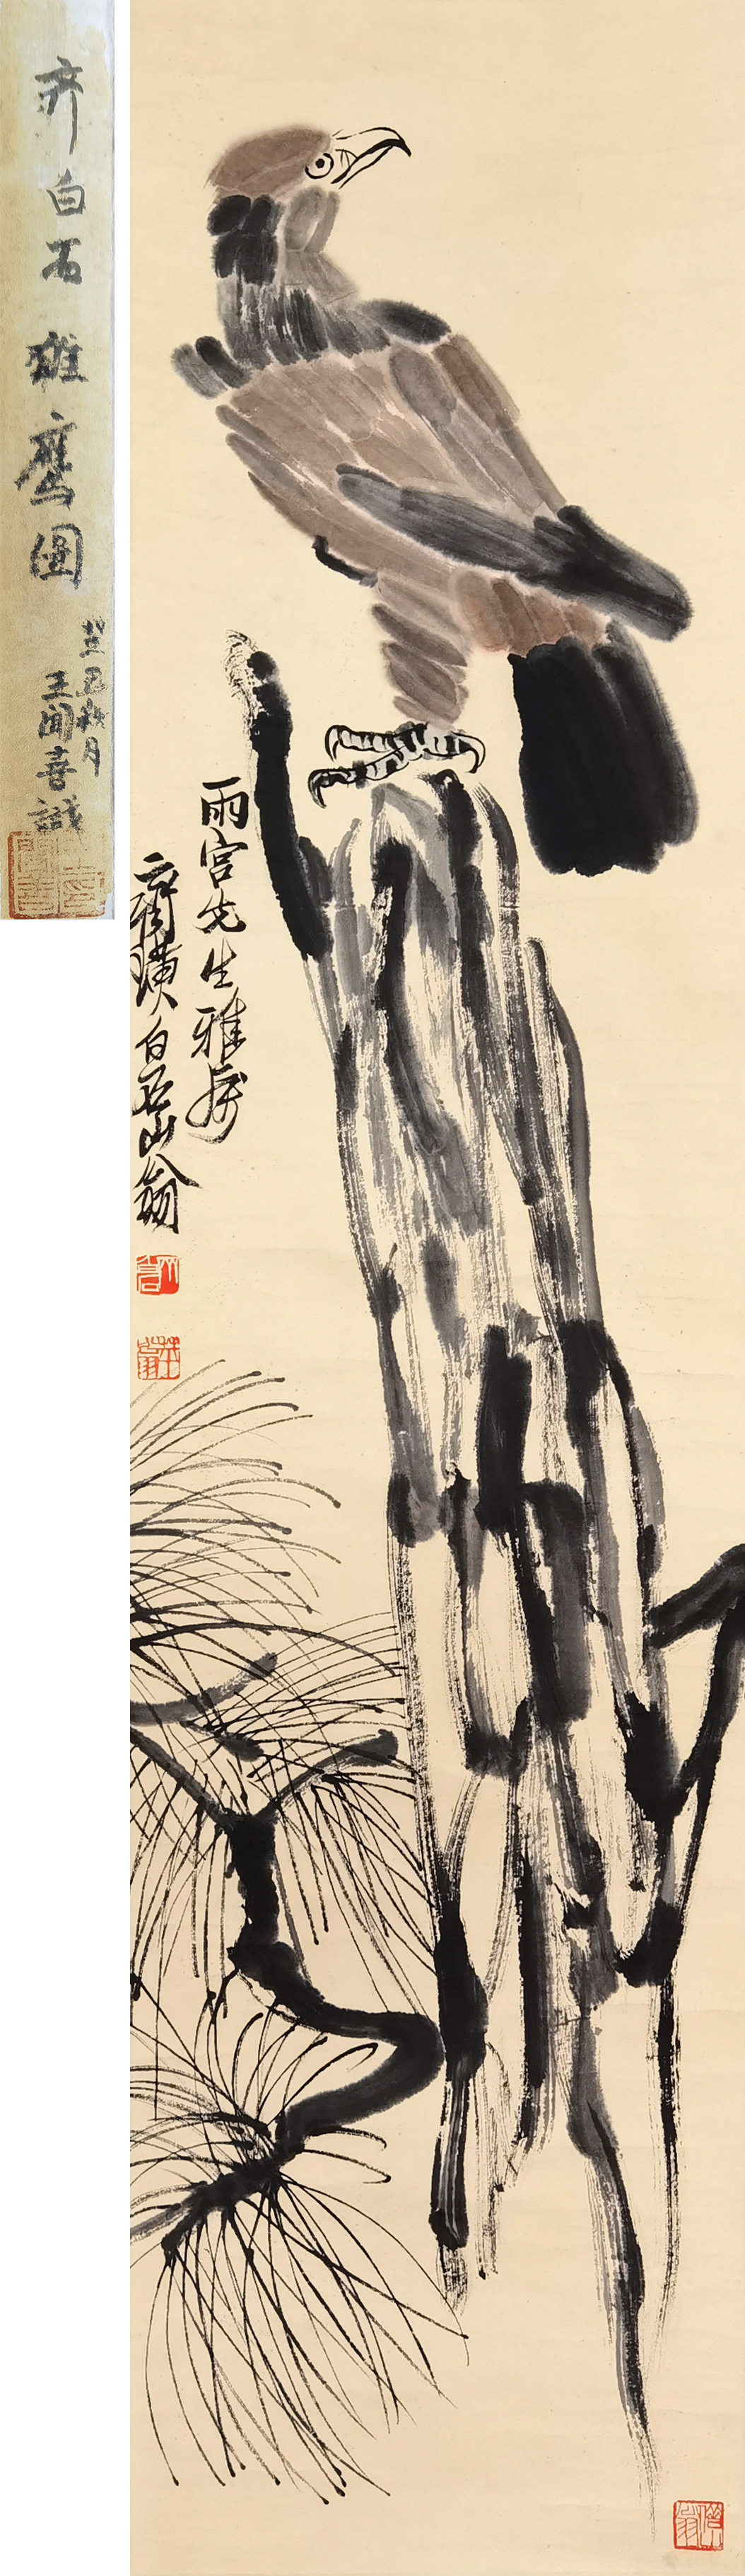 齐白石雄鹰图
癸丑秋月
王闻喜識
雨宫先生雅屬
齊璜白石山翁
借山翁